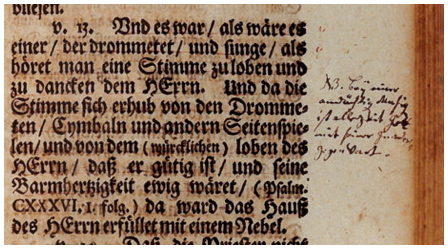 bliesen.
v. 13. Vnd es war/ als wäre es
einer/ der drommetet/ und sunge/ als
höret man eine Stimme zu loben und
zu dancken dem HErrn. Und da die
Stimme sich erhub von den Dromme-
ten/ Cymbaln und andern Seitenspie-
len/ und von dem (würcklichen) loben des
HErrn/ daß er gütig ist/ und seine
Barmhertzigkeit ewig wäret/ (Psalm.
CXXXVI, 1. folg.) da ward das Hauß
des HErrn erfüllet mit einem Nebel.
Daß die Priester nicht
NB. Bey einer
andächtig Musiq
ist allezeit Gott
mit seiner Gnaden
Gegenwart.